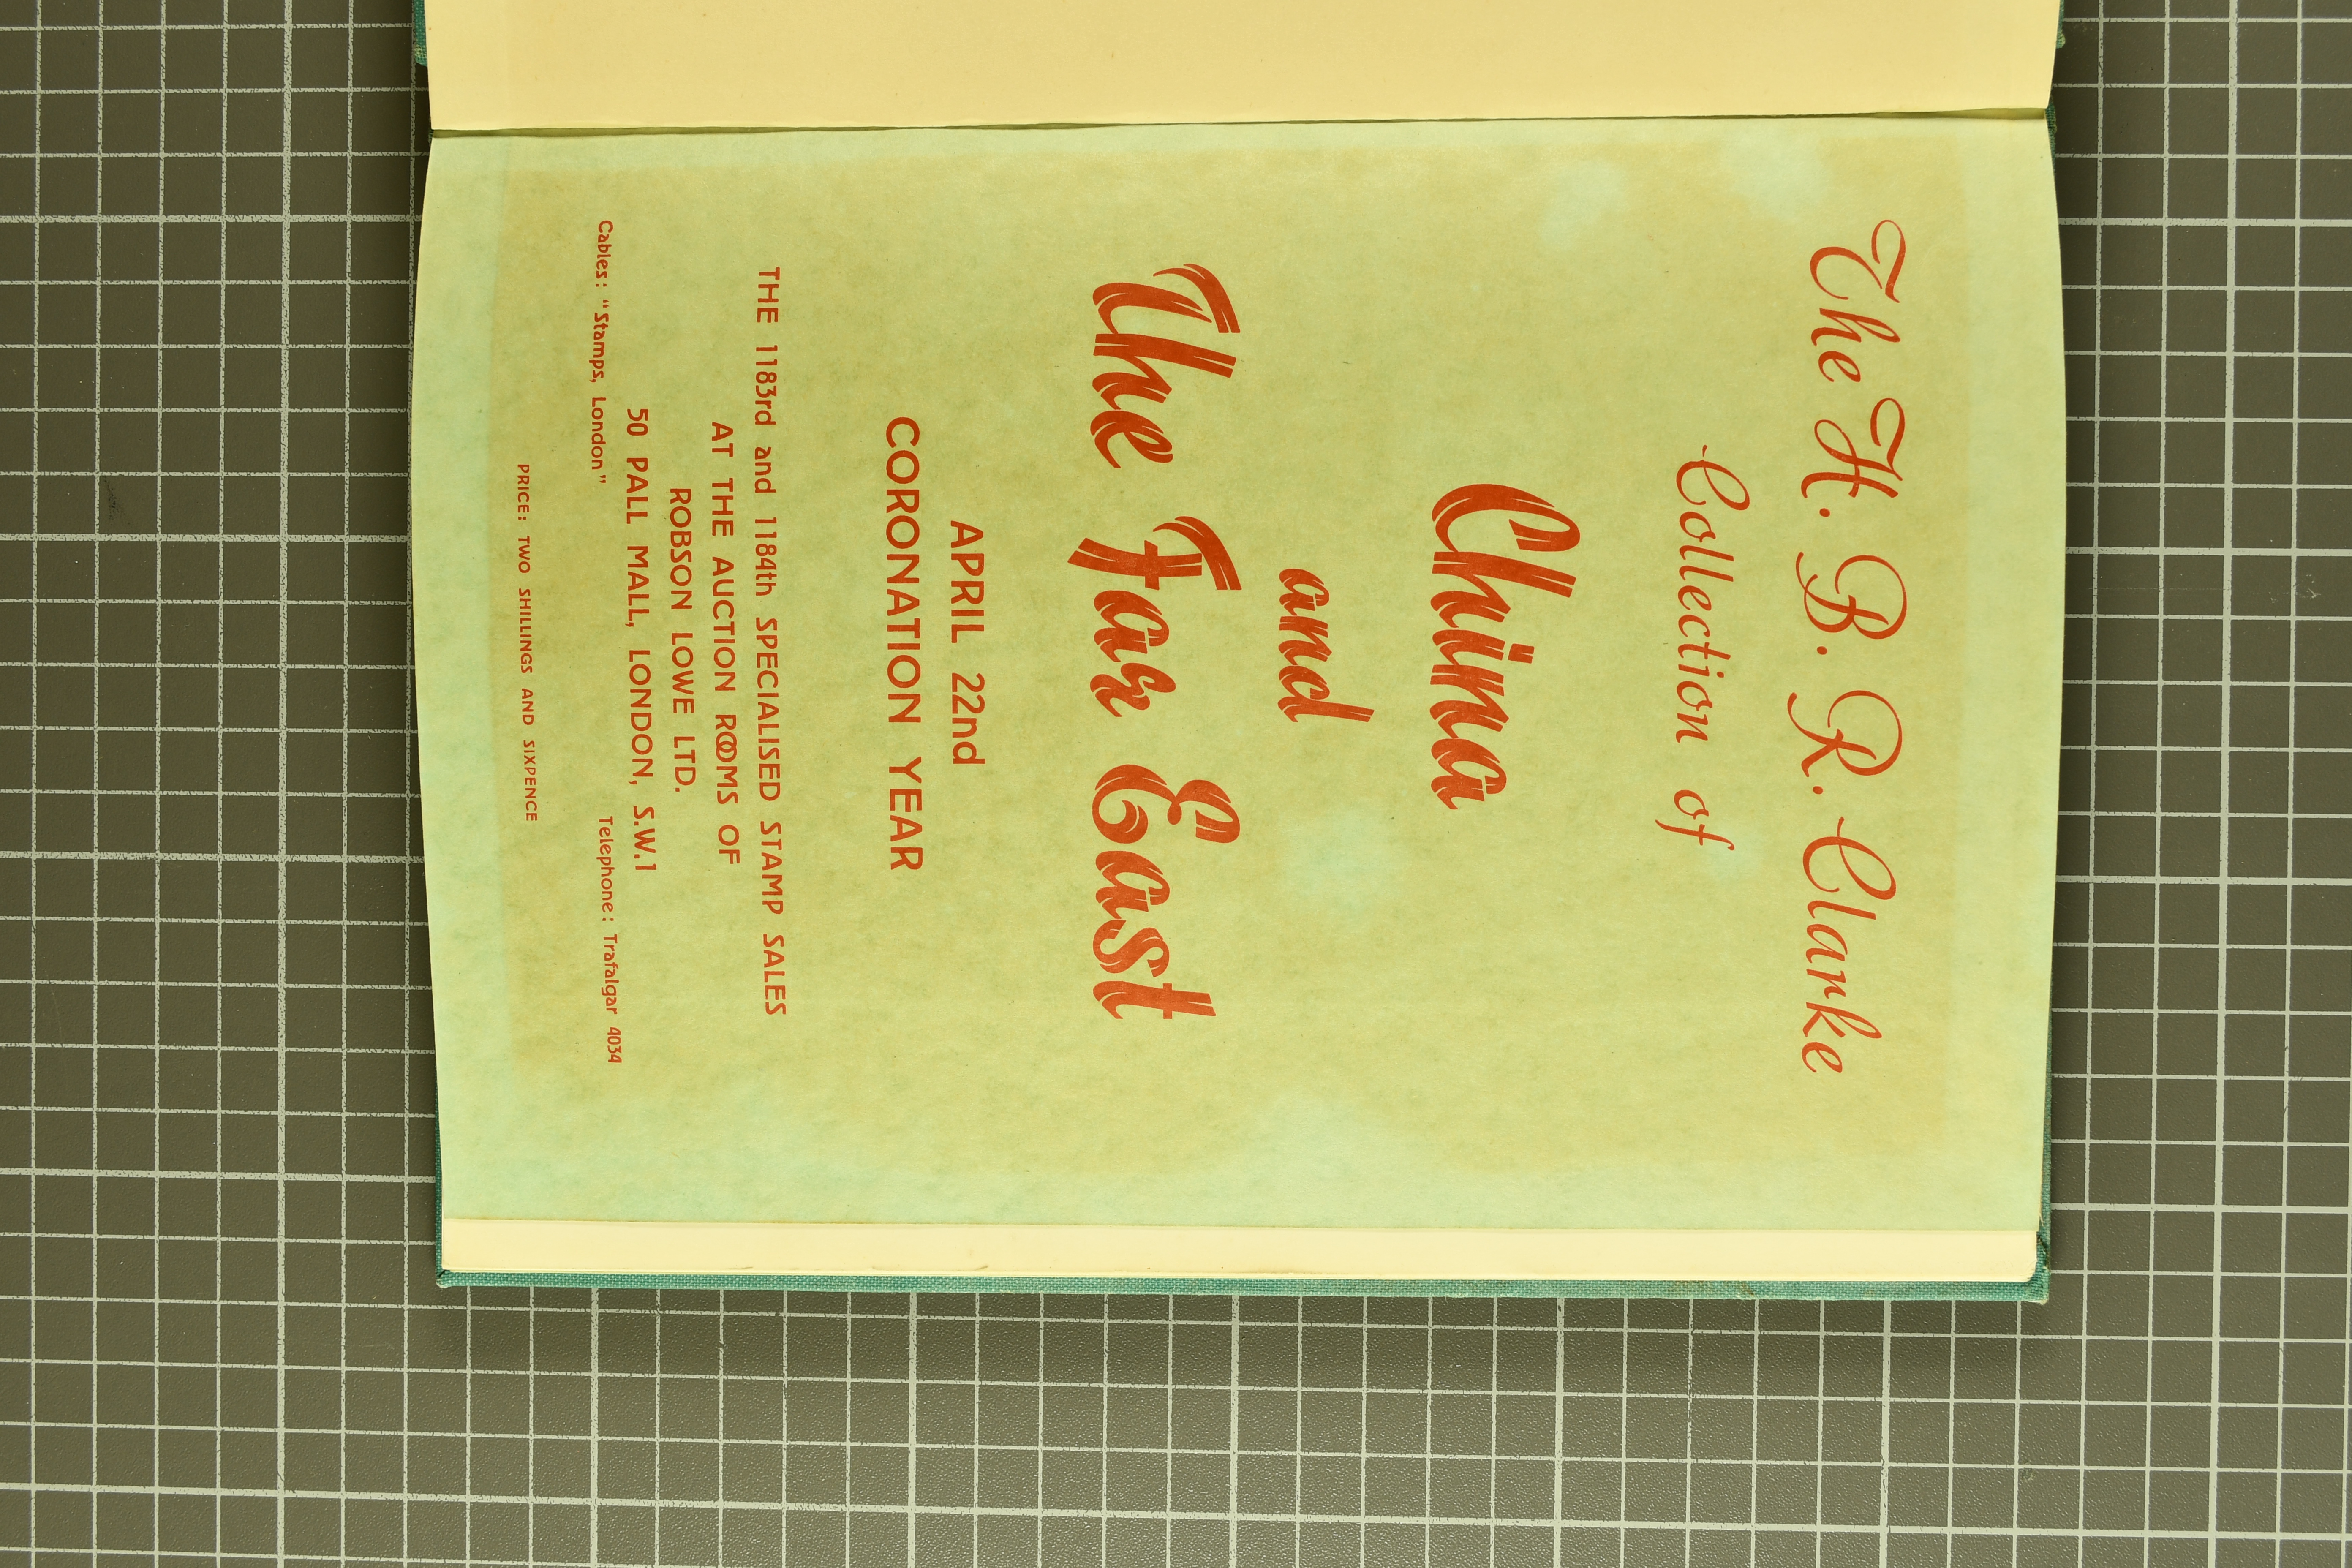 The H. B. R. Clarke
Collection of
China
and
The Far East
APRIL 22nd
CORONATION YEAR
THE 1183rd and 1184th SPECIALISED STAMP SALES
AT THE AUCTION ROOMS OF
ROBSON LOWE LTD.
50 PALL MALL, LONDON, S.W.1
Cables: "Stamps, London" Telephone: Trafalgar 4034
PRICE: TWO SHILLINGS AND SIXPENCE